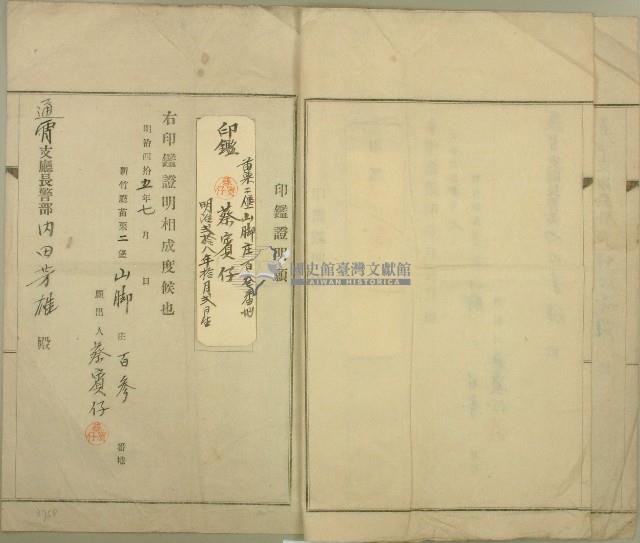 印鑑證明願
苗栗二堡山脚庄百參番地
印鑑 蔡賓仔
明治貳拾八年拾月貳日生
右印鑑證明相成度候也
明治四拾五年七月 日
新竹廳苗栗二堡山脚庄百參番地
願出人 蔡賓仔
通霄支廳長警部 内田芳雄 殿
國史館臺灣文獻館
TAIWAN HISTORICA